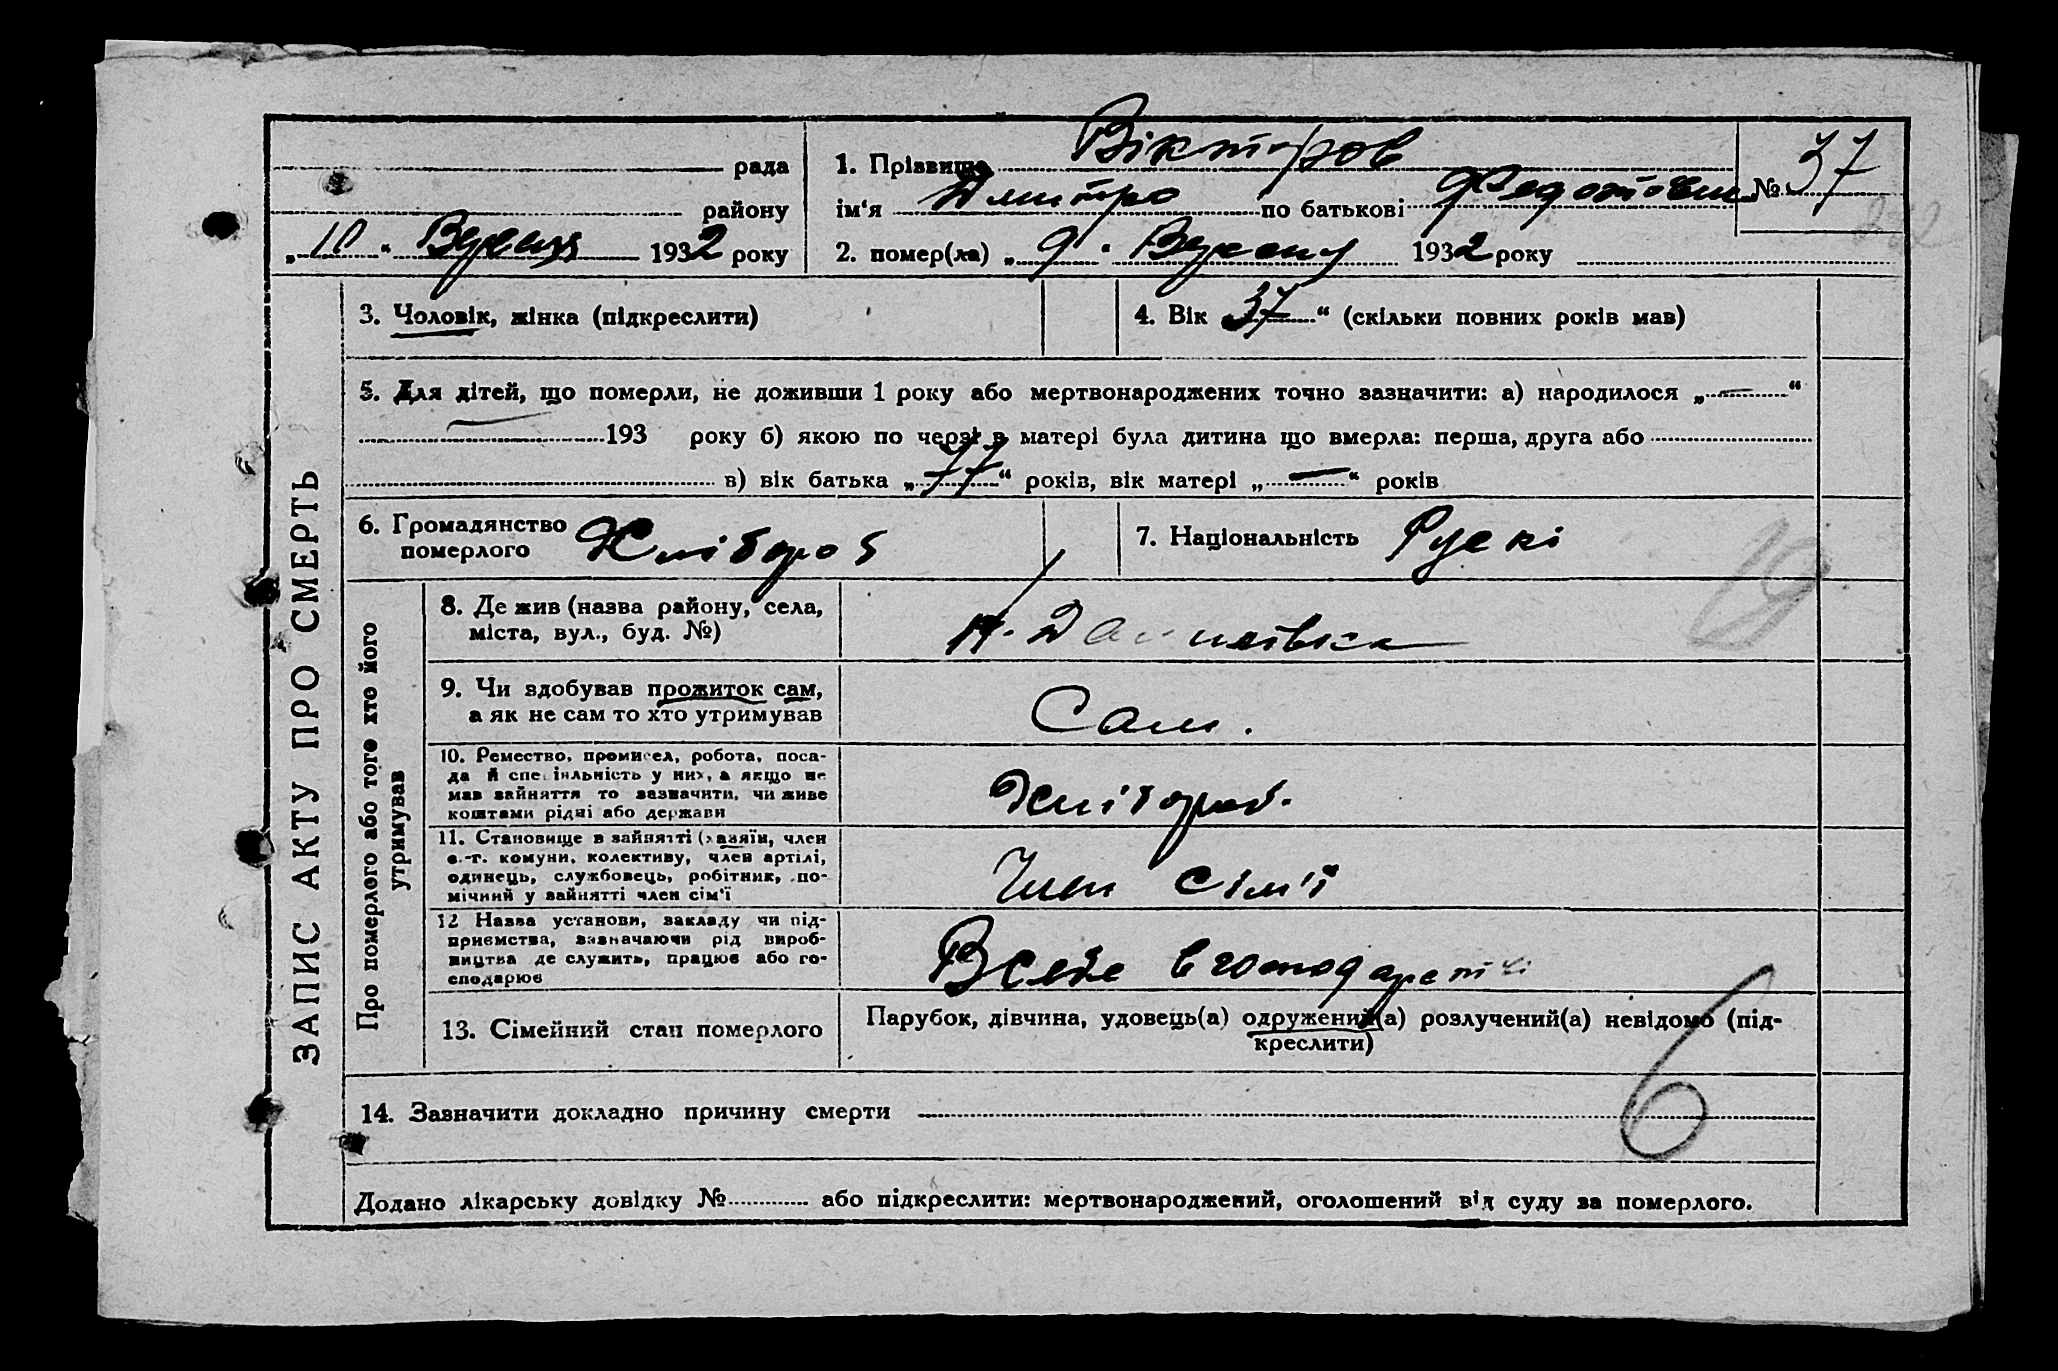 рада
району
„ 10 “ Вересня 1932 року
1. Прізвище Вікторов
ім‘я Дмитро по батькові Федотович № 37
2. помер(ла) „ 9 “ Вересня 1932 року
ЗАПИС АКТУ ПРО СМЕРТЬ
3. Чоловік, жінка (підкреслити)
4. Вік 37 “ (скільки повних років мав)
5. Для дітей, що померли, не доживши 1 року або мертвонароджених точно зазначити: а) народилося „ — “
— 193 року б) якою по черзі в матері була дитина що вмерла: перша, друга або
в) вік батька „ 77 “ років, вік матері „ — “ років
6. Громадянство
померлого Хлібороб
7. Національність Рускі
Про померлого або того хто його
утримував
8. Де жив (назва району, села,
міста, вул., буд. №)
Н. Данилівка
9. Чи здобував прожиток сам,
а як не сам то хто утримував
Сам.
10. Ремество, промисел, робота, поса-
да й спеціяльність у них, а якщо не
мав зайняття то зазначити, чи живе
коштами рідні або держави
Хлібороб.
11. Становище в зайнятті (хазяїн, член
с.-г. комуни, колективу, член артілі,
одинець, службовець, робітник, по-
мічний у зайнятті член сім‘ї
Член сім'ї
12 Назва установи, закладу чи під-
приємства, зазначаючи рід вироб-
ництва де служить, працює або го-
сподарює
В себе в господарстві
13. Сімейний стан померлого
Парубок, дівчина, удовець(а) одружений(а) розлучений(а) невідомо (під-
креслити)
6
14. Зазначити докладно причину смерти
Додано лікарську довідку № або підкреслити: мертвонароджений, оголошений від суду за померлого.